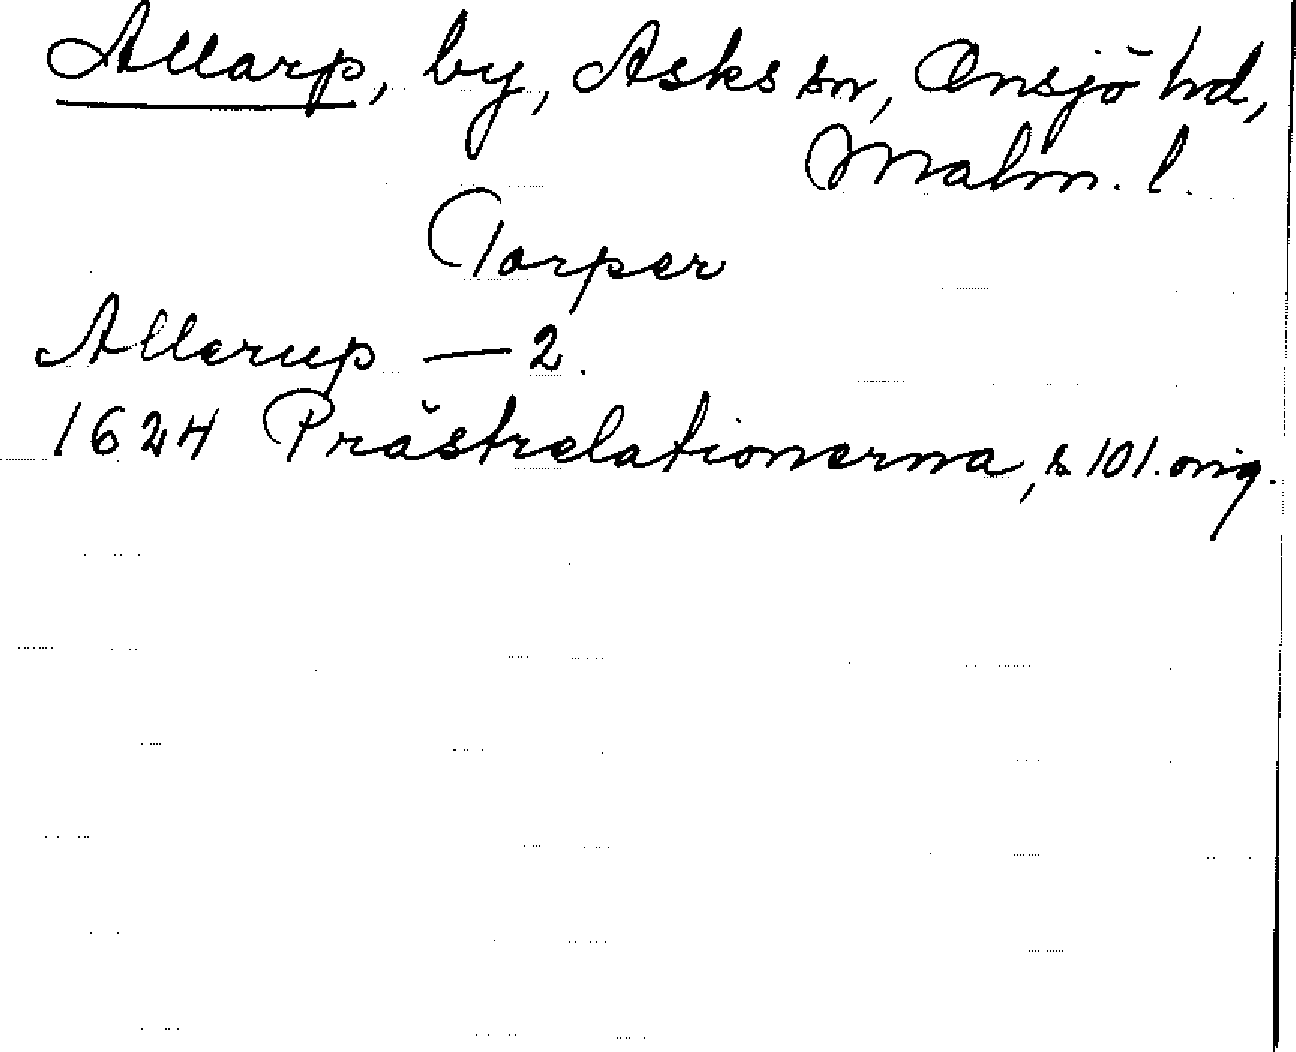 Allarp, by, Asks sn, Onsjö hd,
Malm. l.
Torper
Allerup — 2.
1624 Prästrelationerna, s 101. orig.